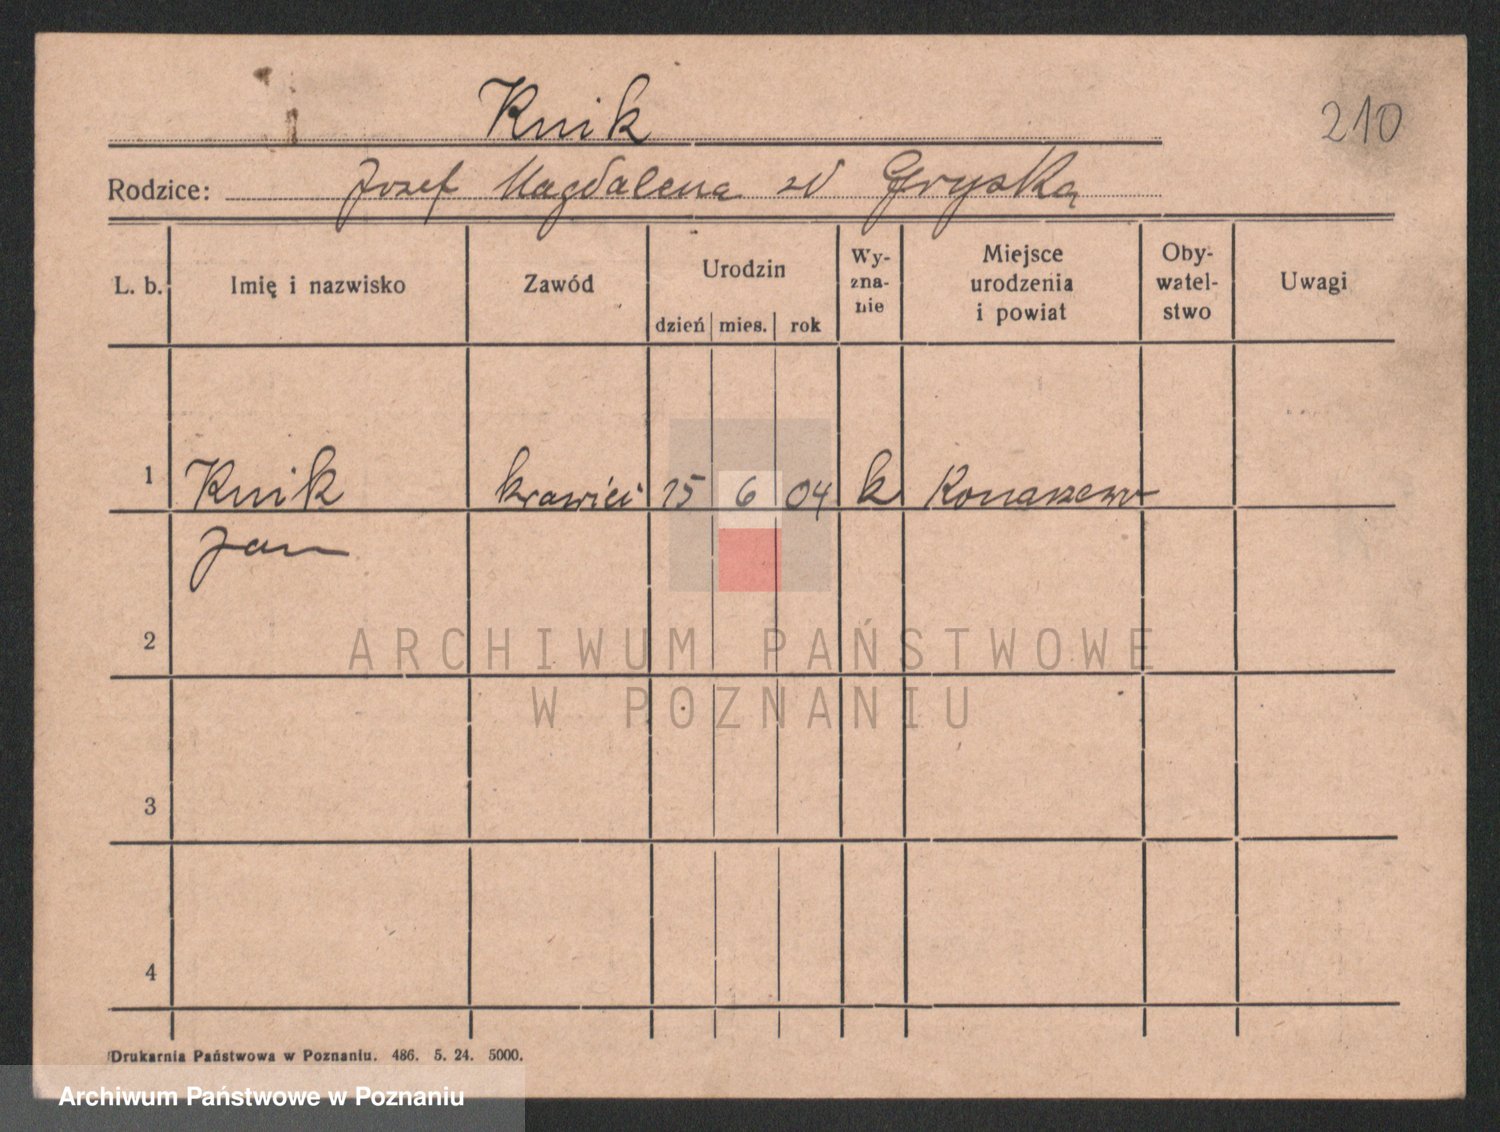 Knik
210
Rodzice: Jozef Magdalena zd Gryska
L. b. Imię i nazwisko Zawód Urodzin dzień mies. rok Wy-zna-nie Miejsce urodzenia i powiat Oby-watel-stwo Uwagi
1 Knik krawiec 15 6 04 k Konarzewo
Jan
2
ARCHIWUM PAŃSTWOWE
W POZNANIU
3
4
Drukarnia Państwowa w Poznaniu. 486. 5. 24. 5000.
Archiwum Państwowe w Poznaniu